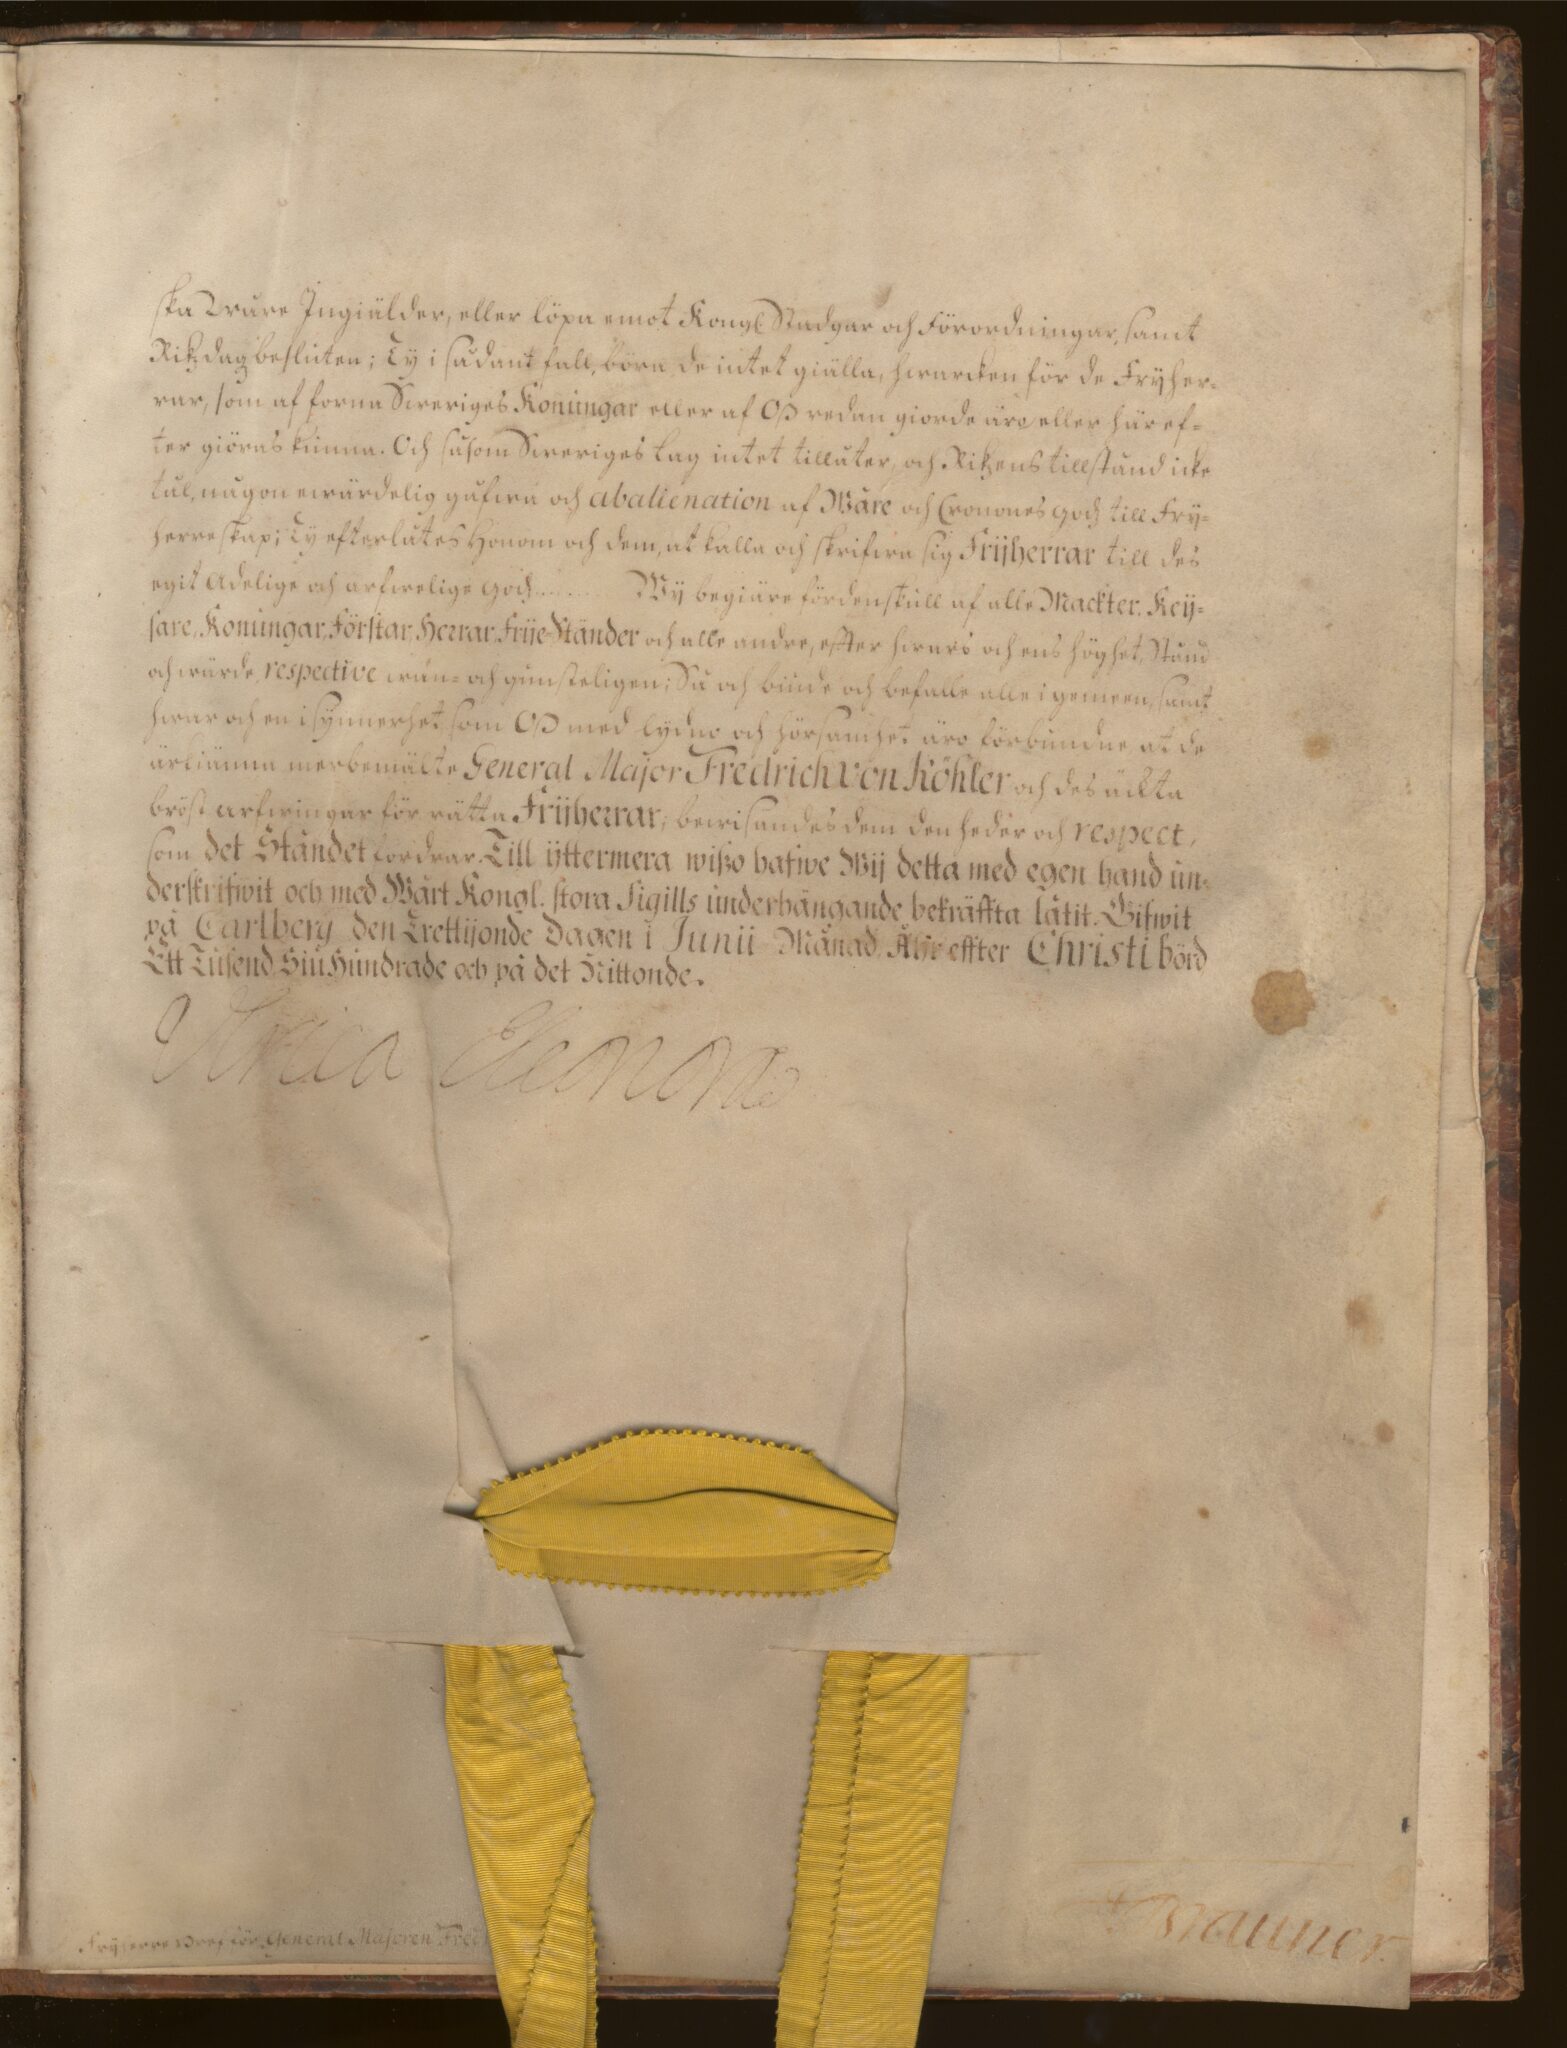 ska Wåre Ingiälder, eller löpa emot Kongl. Stadgar och Förordningar, samt
Rikzdagzbesluten; Ty i sådant fall, böra de intet giälla, hwarcken för de Fryher-
rar, som af forna Sweriges Konungar eller af Oß redan giorde äro eller häref-
ter giöras kunna. Och såsom Sweriges Lag intet tillåter, och Rikzens tillstånd icke
tål, någon ewärdelig gåfwa och abalienation af Wåre och Cronones godz till Fry-
herreskap; Ty efterlåtes Honom och dem, at kalla och skrifwa sig Frijherrar till des
egit Adelige och arfwelige godz. Wy begiäre fördenskull af alle Mackter, Keÿ-
sare, Konungar, Förstar, Herrar, Frije Ständer och alle andre, effter hwars och ens höghet, Stånd
och wärde, respective wän- och gunsteligen; Så och biude och befalle alle i gemeen, samt
hwar och en i synnerhet, som Oß med lydno och hörsamhet äro förbundne, at de
ärkiänna merbemälte General Major Fredrich von Köhler och des ächta
bröst arfwingar för rätta Frijherrar, bewisandes dem den heder och respect,
som det Ståndet fordrar. Till ÿttermera wißo hafwe Wij detta med egen hand un-
derskrifwit och med Wårt Kongl. stora Sigills underhängande bekräffta låtit. Gifwit
på Carlberg den Trettijonde Dagen i Junii Månad, Åhr effter Christi börd
Ett Tusend Siu Hundrade och på det Nittonde.
Ulrica Eleonora
Fryherre Bref för General Majoren Fred